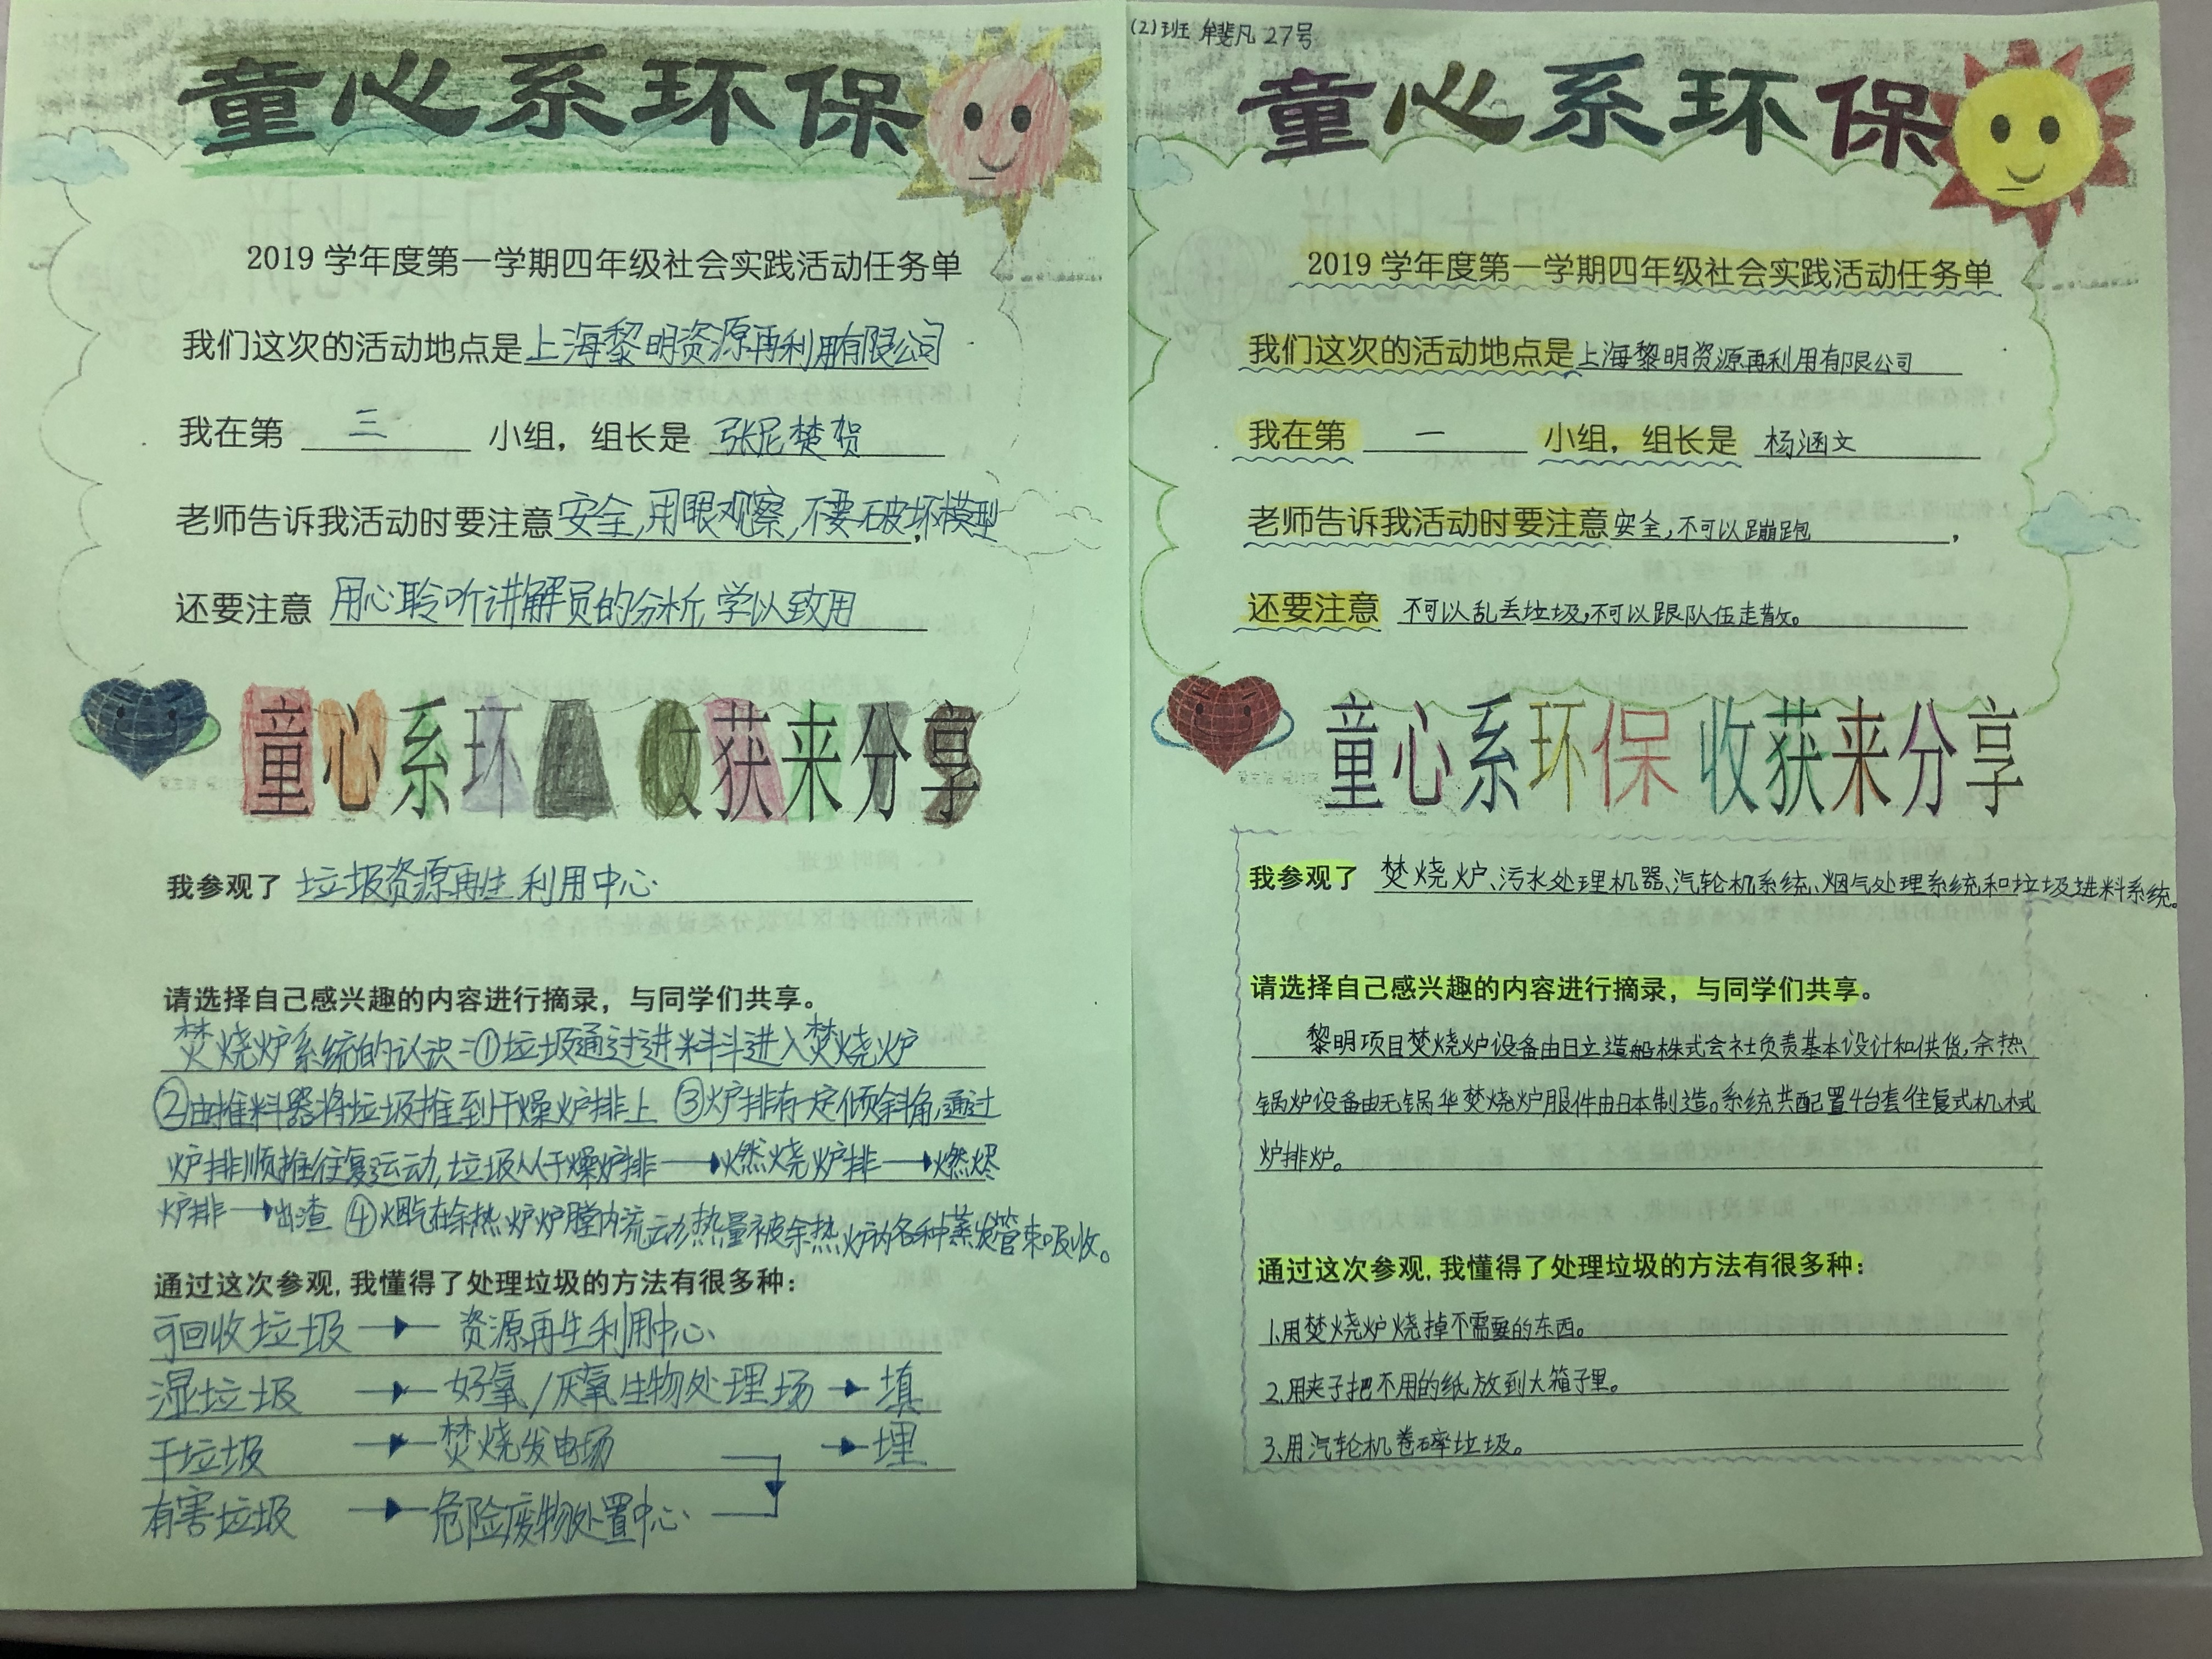 童心系环保
2019 学年度第一学期四年级社会实践活动任务单
我们这次的活动地点是上海黎明资源再利用有限公司
我在第 三 小组，组长是 张尼楚贺
老师告诉我活动时要注意安全,用眼观察,不要破坏模型,
还要注意 用心聆听讲解员的分析,学以致用
童心系环 收获来分享
我参观了 垃圾资源再生利用中心
请选择自己感兴趣的内容进行摘录，与同学们共享。
焚烧炉系统的认识:①垃圾通过进料斗进入焚烧炉
②由推料器将垃圾推到干燥炉排上 ③炉排有一定倾斜角,通过
炉排顺推往复运动,垃圾从干燥炉排→燃烧炉排→燃烬
炉排→出渣 ④烟气在余热炉炉膛内流动热量被余热炉内各种蒸发管束吸收。
通过这次参观, 我懂得了处理垃圾的方法有很多种：
可回收垃圾 → 资源再生利用中心
湿垃圾 → 好氧/厌氧生物处理场 → 填
干垃圾 → 焚烧发电场 → 埋
有害垃圾 → 危险废物处置中心
(2)班 牟斐凡 27号
童心系环保
2019 学年度第一学期四年级社会实践活动任务单
我们这次的活动地点是上海黎明资源再利用有限公司
我在第 一 小组，组长是 杨涵文
老师告诉我活动时要注意安全,不可以蹦跑,
还要注意 不可以乱丢垃圾,不可以跟队伍走散。
童心系环保 收获来分享
我参观了 焚烧炉、污水处理机器、汽轮机系统、烟气处理系统和垃圾进料系统。
请选择自己感兴趣的内容进行摘录，与同学们共享。
黎明项目焚烧炉设备由日立造船株式会社负责基本设计和供货,余热
锅炉设备由无锅华焚烧炉服件由日本制造。系统共配置4台套往复式机械
炉排炉。
通过这次参观, 我懂得了处理垃圾的方法有很多种：
1.用焚烧炉烧掉不需要的东西。
2.用夹子把不用的纸放到大箱子里。
3.用汽轮机卷碎垃圾。